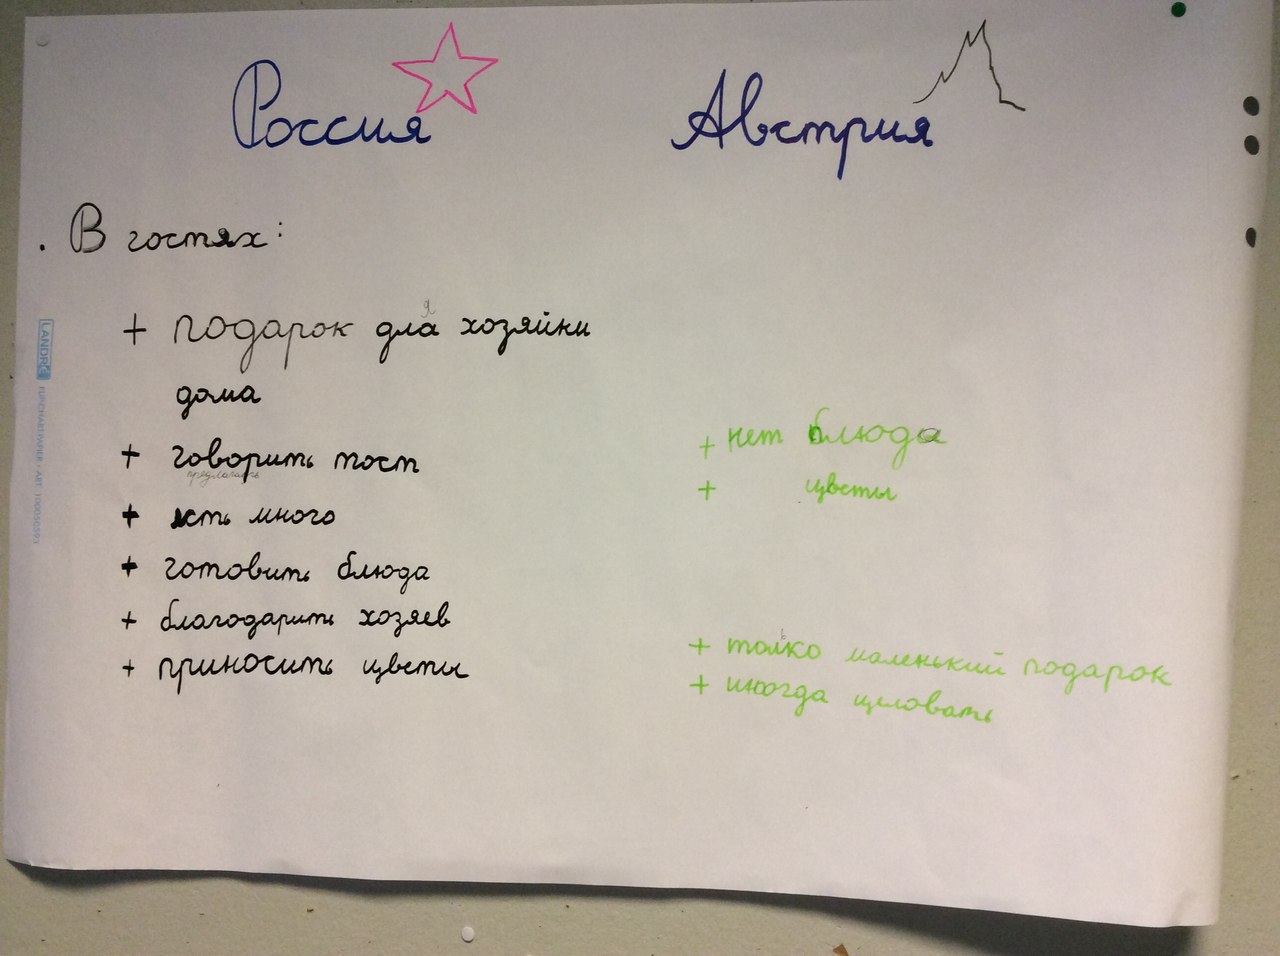 Россия
Австрия
. В гостях:
+ подарок дла хозяйки
я
дома
+ говорить тост
предлагать
+ есть много
+ готовить блюда
+ благодарить хозяев
+ приносить цветы
+ нет блюда
+ цветы
+ толко маленький подарок
ь
+ иногда целовать
LANDRÉ
FLIPCHARTPAPIER · ART. 100050593